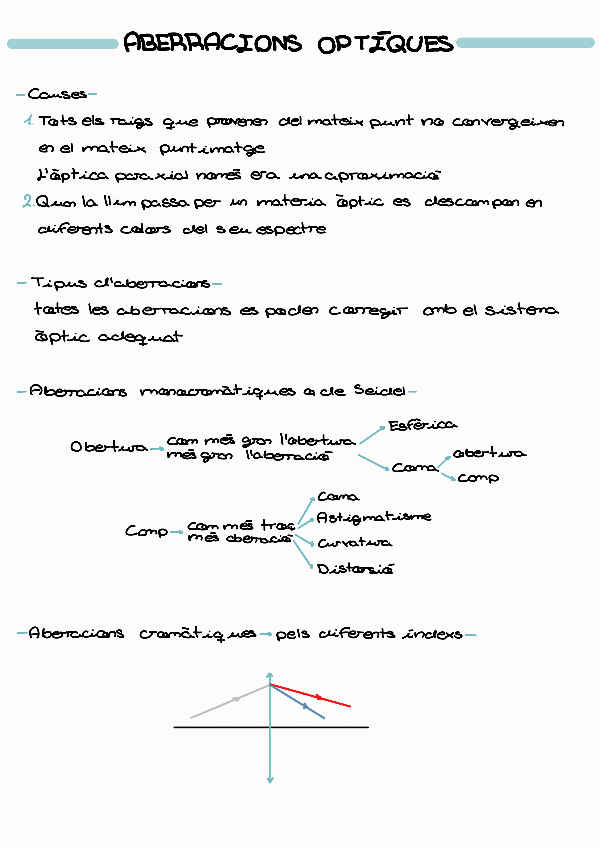 ABERRACIONS OPTÍQUES
-Causes-
1. Tots els raigs que provenen del mateix punt no convergeixen
en el mateix punt imatge
L'òptica paraxial només era una aproximació
2. Quan la llum passa per un materia òptic es descompon en
diferents colors del seu espectre
-Tipus d'aberracions-
totes les aberracions es poden corregir amb el sistema
òptic adequat
-Aberacions monocromàtiques o de Seidel-
Esfèrica
Obertura → com més gran l'abertura
més gran l'aberració
Coma
abertura
camp
Coma
Camp → com més troç
més aberació
Astigmatisme
Curvatura
Distorsió
-Aberacions cromàtiques → pels diferents índexs-